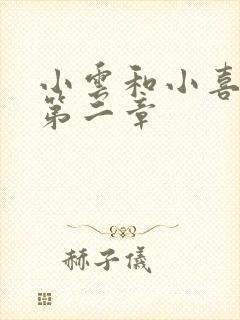 小雲和小喜
第二章
赫子儀